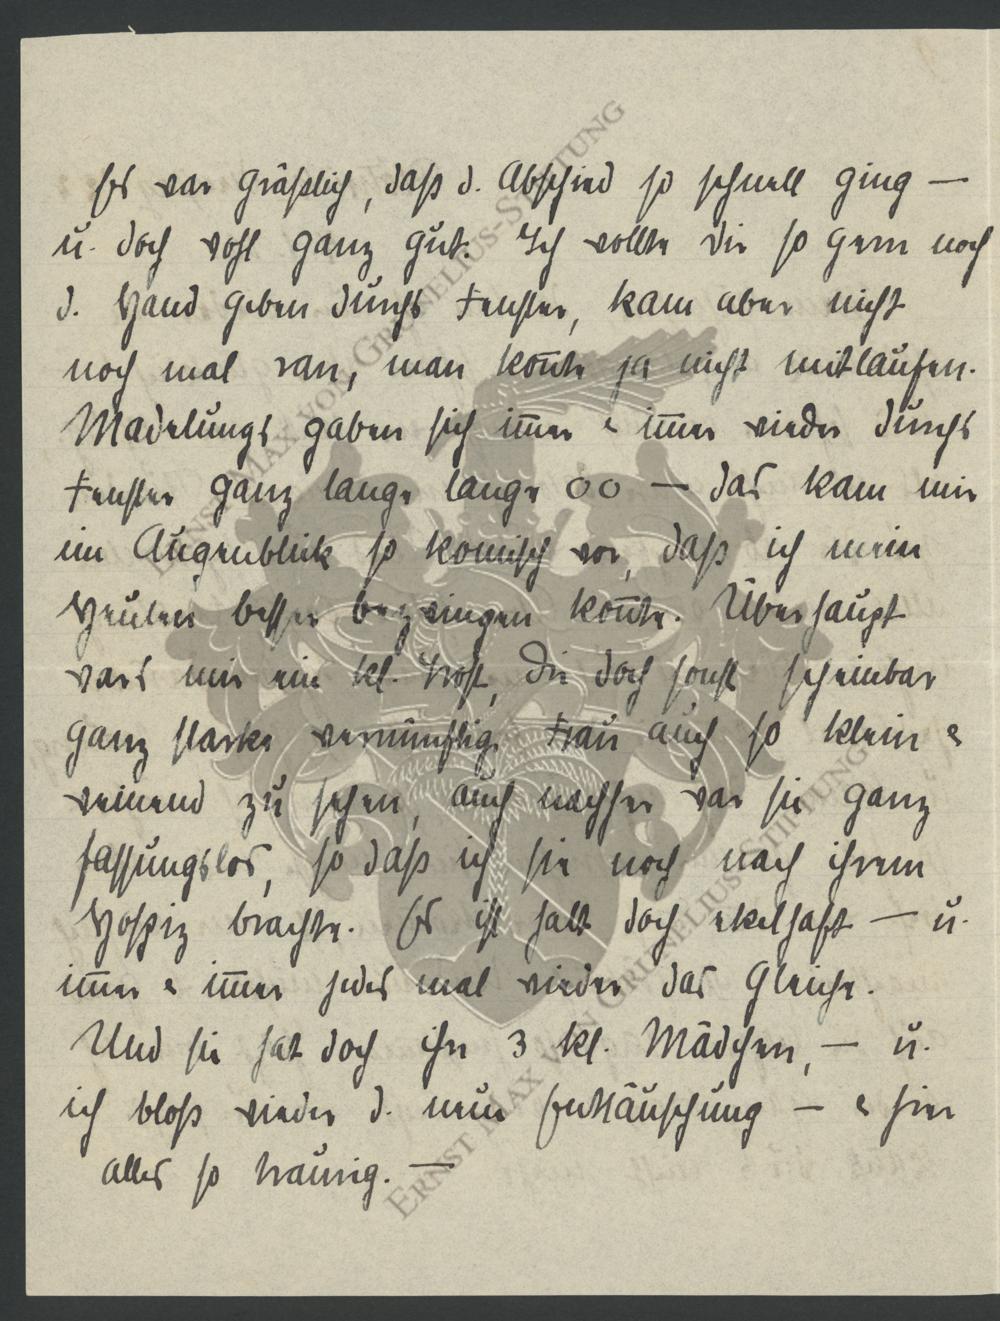 Es war gräßlich, daß d. Abschied so schnell ging —
u. doch wohl ganz gut. Ich wollte Dir so gern noch
d. Hand geben durchs Fenster, kam aber nicht
noch mal ran, man kon̄te ja nicht mitlaufen.
Madelungs gaben sich im̄er & im̄er wieder durchs
Fenster ganz lange lange óo — das kam mir
im Augenblick so komisch vor, daß ich mein
Heulen besser bezwingen kon̄te. Überhaupt
wars mir ein kl. Trost, die doch sonst scheinbar
ganz starke vernünftige Frau auch so klein &
weinend zu sehen, auch nachher war sie ganz
fassungslos, so daß ich sie noch nach ihrem
Hospiz brachte. Es ist halt doch ekelhaft — u.
im̄er & im̄er jedes mal wieder das Gleiche.
Und sie hat doch ihre 3 kl. Mädchen, — u.
ich bloß wieder d. neue Enttäuschung — & hier
alles so traurig. —
ERNST MAX VON GRUNELIUS-STIFTUNG
ERNST MAX VON GRUNELIUS-STIFTUNG